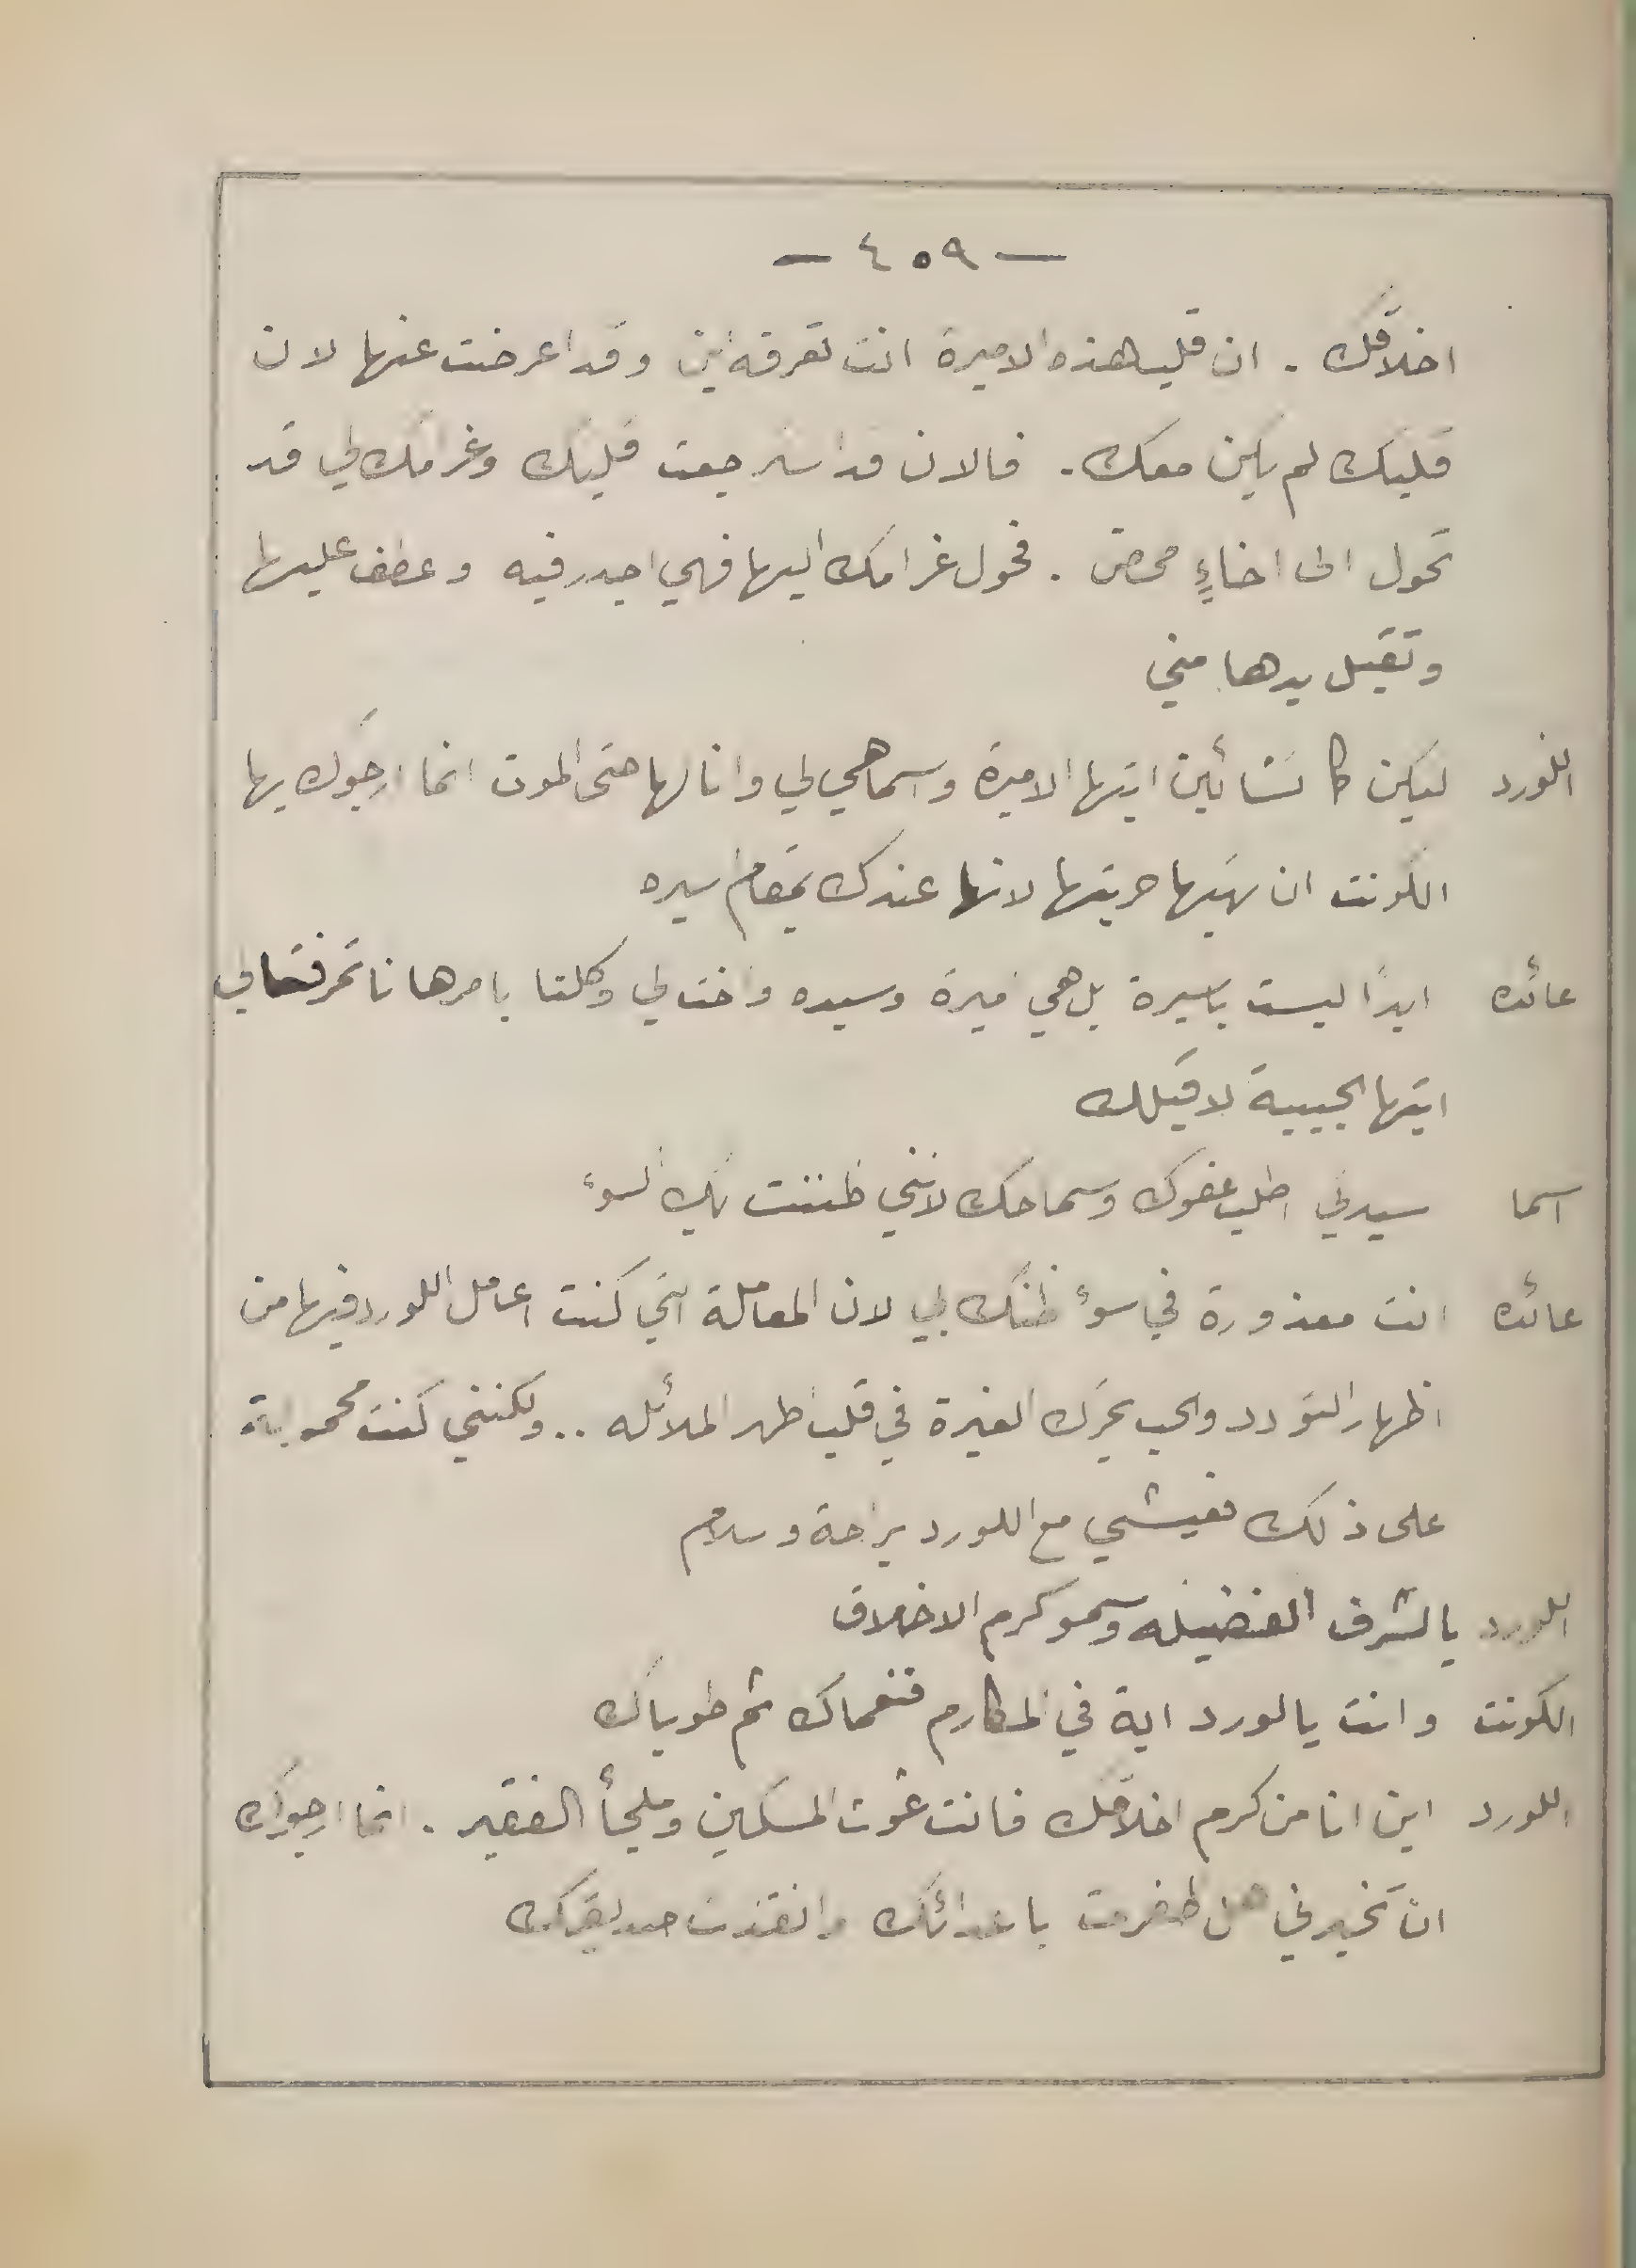 — ٤٥٩ —
اخلاقك . ان قلب هذه الاميرة انت تعرفه اين وقد اعرضت عنها لان
قلبك لم يكن معك . فالان قد استرجعت قلبك وغرامك لي قد
تحول الى اخاءٍ محض . فحول غرامك اليها فهي اجدر فيه وعطف عليها
وتقبل يدها مني
اللورد ليكن كما تشائين ايتها الاميرة واسما هي لي وانا لها حتى الموت انما ارجوك يها
الكونت ان تهبها حريتها لانها عندك بمقام اسيره
عائده ابداً ليست باسيرة بل هي اميرة وسيده واخت لي وكلنا بامرها نأتمر فتعالي
ايتها الحبيبة لاقبلك
اسما سيدتي اطلب عفوك وسماحك لانني ظننت بك السوء
عائده انت معذورة في سوء ظنك بي لان المعاملة التي كنت اعامل اللورد فيها من
اظهار التودد والحب يحرك الغيرة في قلب اطهر الملائكه .. ولكنني كنت مجبورة
على ذلك فعيشي مع اللورد براحة وسلام
اللورد يالشرف الفضيله وسمو كرم الاخلاق
الكونت وانت يالورد اية في المكارم فنعماك ثم طوباك
اللورد اين انا من كرم اخلاقك فانت غوث المسكين وملجأ الفقير . انما ارجوك
ان تخبرني هل ظفرت باعدائك وانقذت صديقك